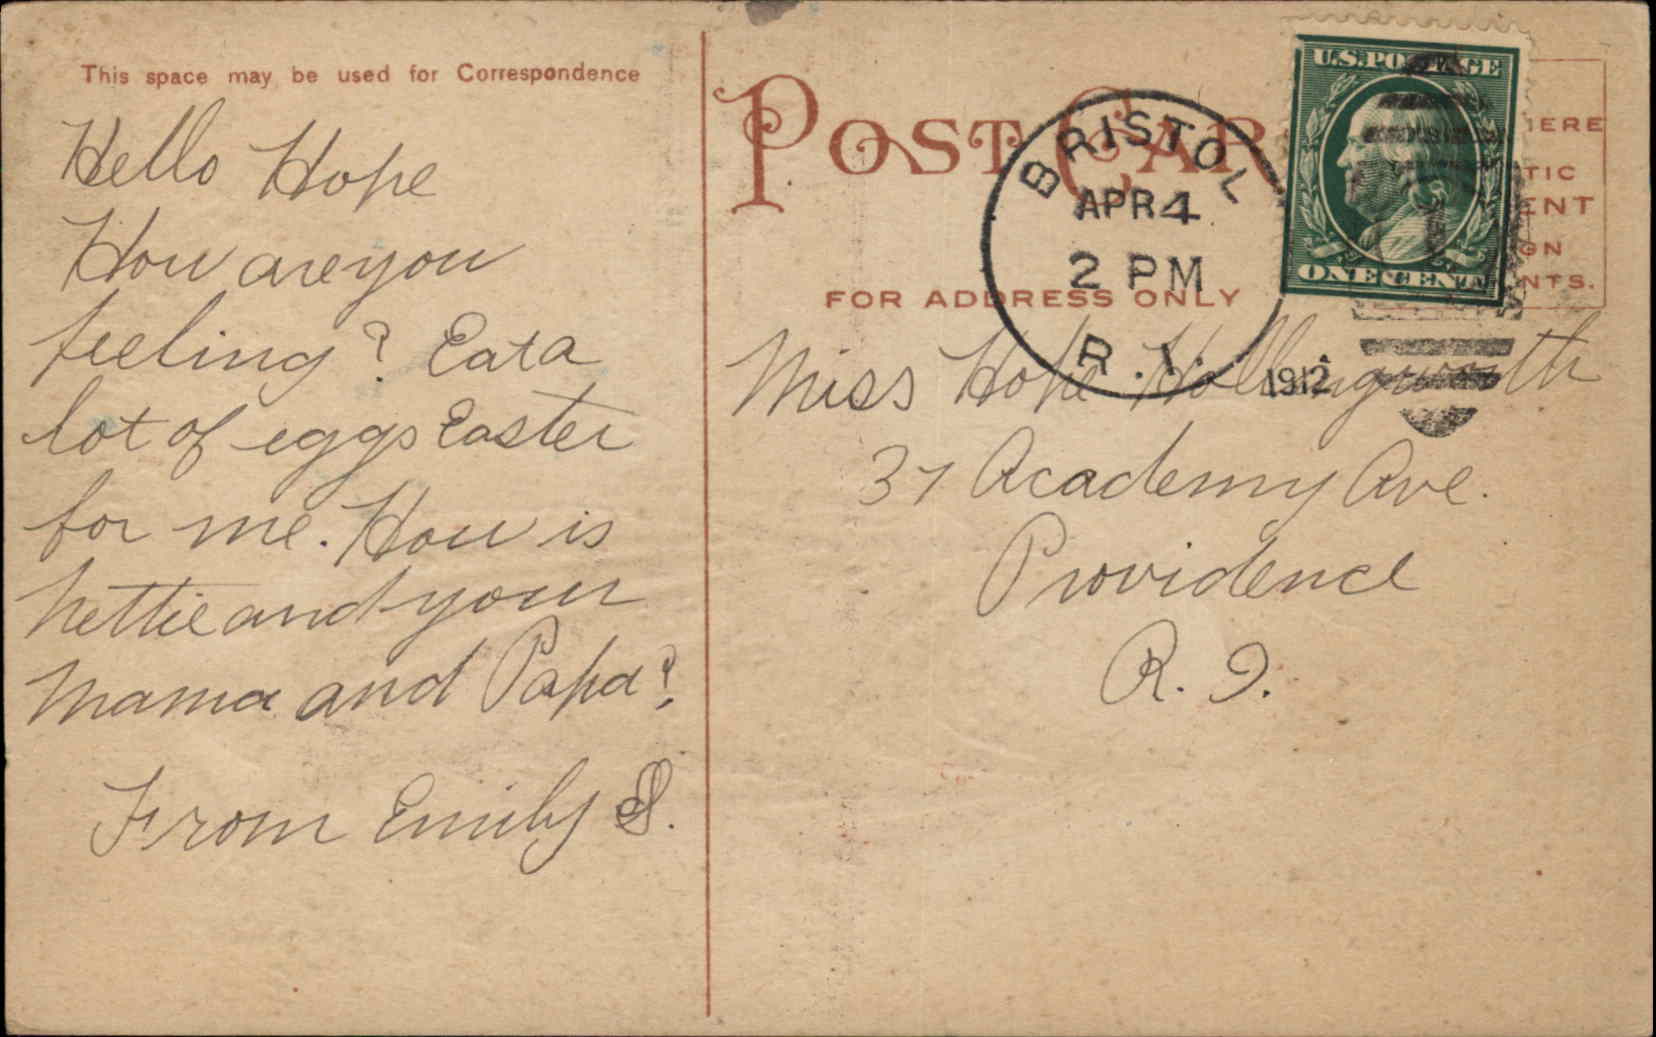 This space may be used for Correspondence
Hello Hope
How are you
feeling? Eat a
lot of eggs Easter
for me. How is
hettie and your
Mama and Papa?
From Emily S.
POST CAR
FOR ADDRESS ONLY
BRISTOL
APR 4
2 PM
R.I.
1912
U.S. POSTAGE
ONE CENT
HERE
TIC
ENT
GN
NTS.
Miss Hope Hollingworth
37 Academy Ave.
Providence
R. I.